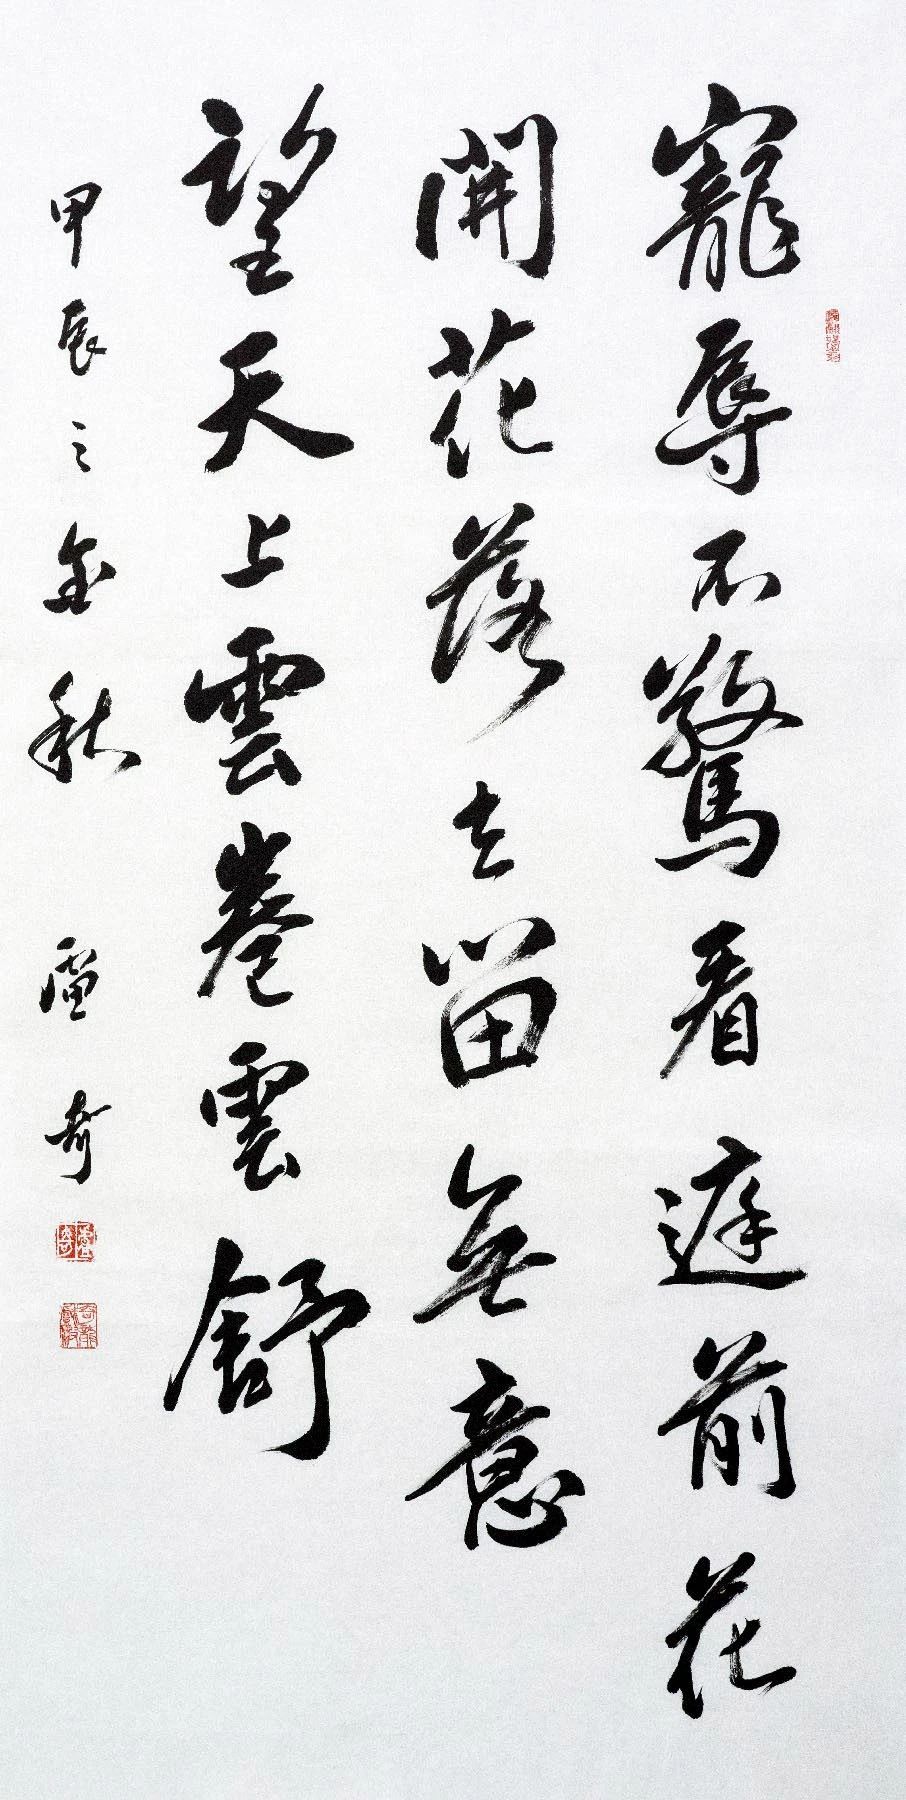 寵辱不驚看庭前花
開花落去留無意
望天上雲卷雲舒
甲辰之金秋 盧奇